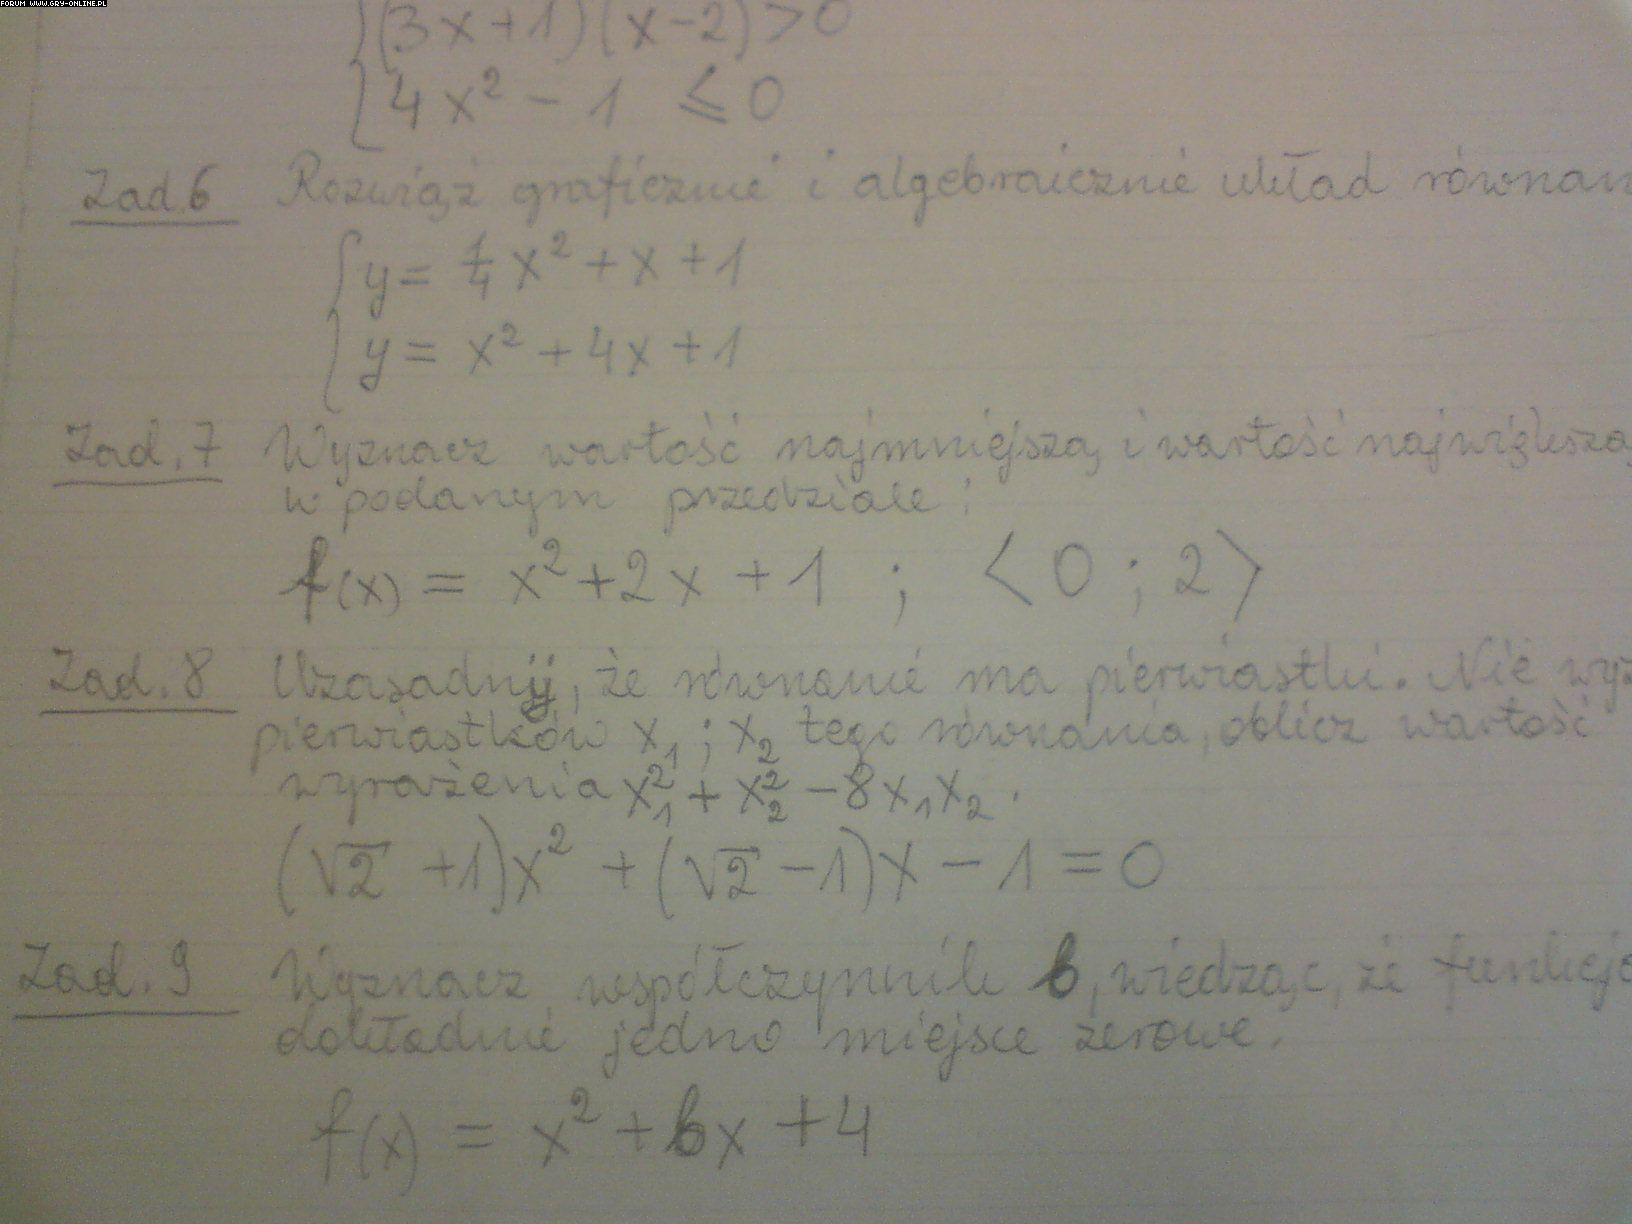 FORUM WWW.GRY-ONLINE.PL
(3x+1)(x-2)>0
4x² - 1 ≤ 0
Zad.6 Rozwiąż graficznie i algebraicznie układ równań
y = 1/4 x² + x + 1
y = x² + 4x + 1
Zad.7 Wyznacz wartość najmniejszą i wartość największą
w podanym przedziale:
f(x) = x² + 2x + 1 ; <0 ; 2>
Zad.8 Uzasadnij, że równanie ma pierwiastki. Nie wyz
pierwiastków x₁ ; x₂ tego równania, oblicz wartość
wyrażenia x₁² + x₂² - 8x₁x₂.
(√2 +1)x² + (√2 -1)x - 1 = 0
Zad.9 Wyznacz współczynnik b, wiedząc, że funkcja
dokładnie jedno miejsce zerowe.
f(x) = x² + bx + 4